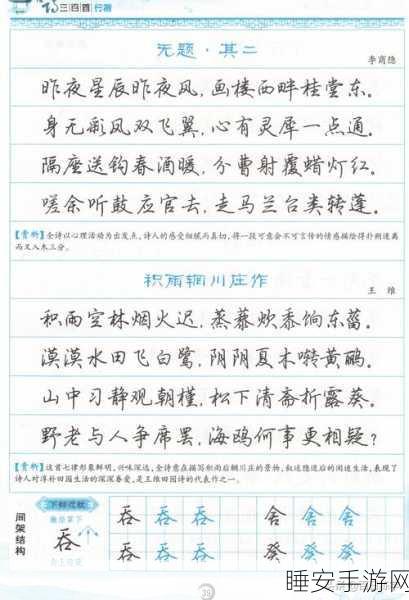 三百首 行楷
无题·其二
李商隐
昨夜星辰昨夜风，画楼西畔桂堂东。
身无彩凤双飞翼，心有灵犀一点通。
隔座送钩春酒暖，分曹射覆蜡灯红。
嗟余听鼓应官去，走马兰台类转蓬。
【赏析】全诗以心理活动为出发点，诗人的感受细腻而真切，将一段可意会不可言传的情感描绘得扑朔迷离
而又入木三分。
积雨辋川庄作
王维
积雨空林烟火迟，蒸藜炊黍饷东菑。
漠漠水田飞白鹭，阴阴夏木啭黄鹂。
山中习静观朝槿，松下清斋折露葵。
野老与人争席罢，海鸥何事更相疑？
【赏析】这首七律形象鲜明，兴味深远，全诗意在描写积雨后辋川庄的景物，叙述隐退后的闲适生活，表现了
诗人对淳朴田园生活的深深眷爱，是王维田园诗的代表作之一。
间架结构
下斜过底
吞
吞 吞 吞 舍 舍 舍
吞 吞 吞 葵 葵 葵
39
睡安手游网